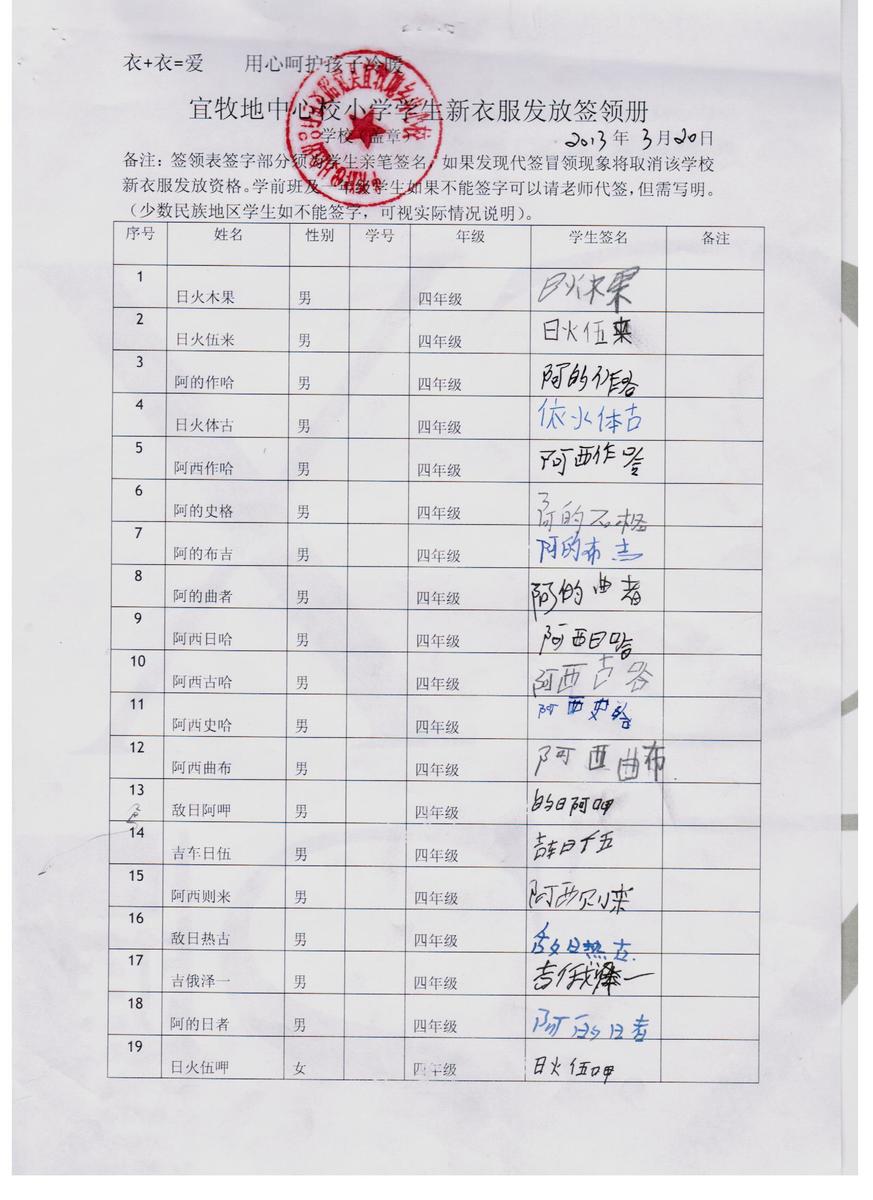 衣+衣=爱 用心呵护孩子冷暖
宜牧地中心校小学学生新衣服发放签领册
学校（盖章） 2013年3月20日
备注：签领表签字部分须为学生亲笔签名，如果发现代签冒领现象将取消该学校
新衣服发放资格。学前班及一年级学生如果不能签字可以请老师代签，但需写明。
（少数民族地区学生如不能签字，可视实际情况说明）。
序号 姓名 性别 学号 年级 学生签名 备注
1 日火木果 男 四年级 日火木果
2 日火伍来 男 四年级 日火伍来
3 阿的作哈 男 四年级 阿的作哈
4 日火体古 男 四年级 依火体古
5 阿西作哈 男 四年级 阿西作哈
6 阿的史格 男 四年级 阿的石格
7 阿的布吉 男 四年级 阿的布吉
8 阿的曲者 男 四年级 阿的曲者
9 阿西日哈 男 四年级 阿西日哈
10 阿西古哈 男 四年级 阿西古各
11 阿西史哈 男 四年级 阿西史哈
12 阿西曲布 男 四年级 阿西曲布
13 敌日阿呷 男 四年级 的日阿呷
14 吉车日伍 男 四年级 吉车日五
15 阿西则来 男 四年级 阿西则来
16 敌日热古 男 四年级 敌日热古
17 吉俄泽一 男 四年级 吉俄泽一
18 阿的日者 男 四年级 阿的日者
19 日火伍呷 女 四年级 日火伍呷